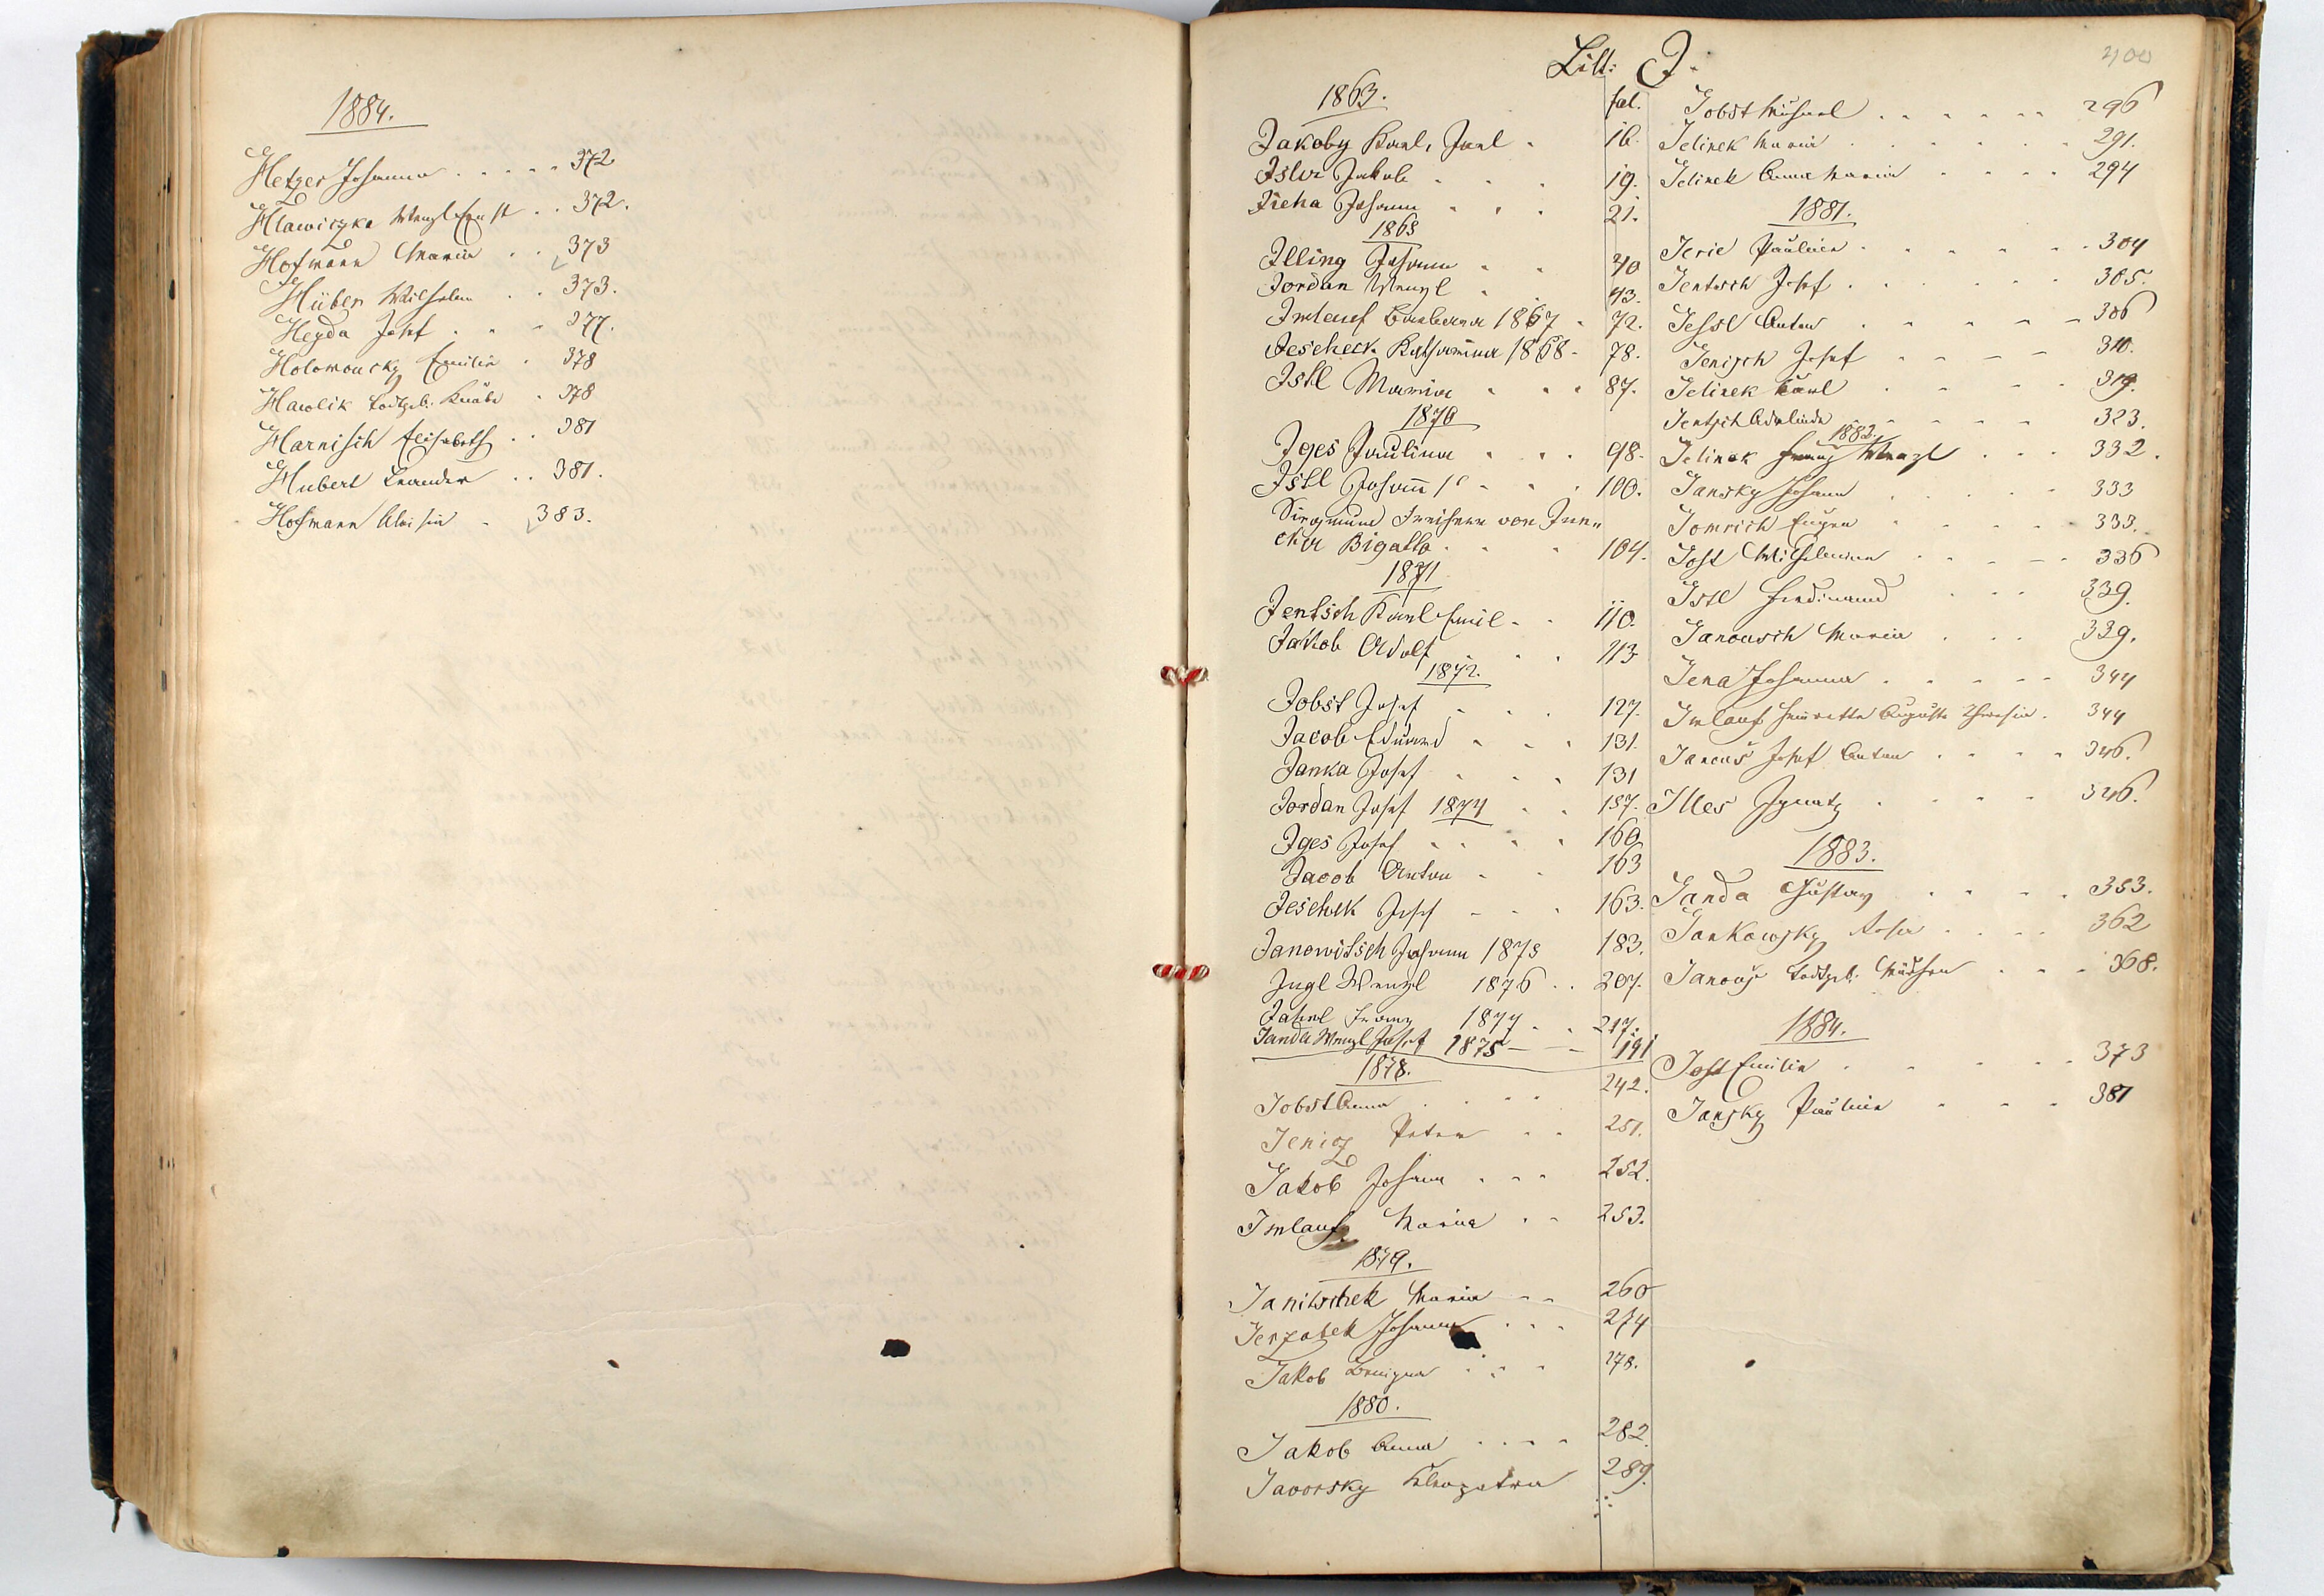 1884.
Hetzer Johanna . . . . . 372
Hlawiczka Wenzl Ernst . . 372.
Hofmann Maria . . 373
Hüber Wilhelm . . 373.
Heyda Josef . . . 277.
Holowousky Emilie . 378
Hawlik todtgeb. Knabe . 378
Harnisch Elisabeth . . 381
Hubert Leander . . 381.
Hofmann Aloisia . 383.
400
Litt: J.
1863. fol.
Jakoby Karl, Paul . 16.
Isler Jakob . . . 19.
Jicha Johann . . . 21.
1865
Illing Johann . . 40
Jordan Wenzl . . 43.
Imlauf Barbara 1867 . 72.
Jescheck Katharina 1868 - 78.
Istl Maria . . . 87.
1870
Iges Paulina . . . 98.
Istl Johann . . . 100.
Siegmund Freiherr von Jun-
cker Bigatto . . . 104.
1871
Jentsch Karl Emil - . 110.
Jakob Adolf . . . 113
1872.
Jobst Josef . . . 127.
Jacob Eduard . . . 131.
Janka Josef . . . 131
Jordan Josef 1874 . . 157.
Iges Josef . . . . 160
Jacob Anton . . 163
Jeschek Josef - . . 163.
Janowitsch Johann 1875 183.
Jugl Wenzl 1876 . . 207.
Jakel Franz 1877 . . 217.
Janda Wenzl Josef 1875 — — 191
1878.
Jobst Anna . . . . 242.
Jenicz Peter . . 251.
Jakob Johann . . . 252.
Imlauf Maria . . 253.
1879.
Janitschek Maria . . 260
Jerzabek Johanna . . . 274
Jakob Benigna . . . 278.
1880.
Jakob Anna . . . . 282.
Javorsky Kleopatra 289.
Jobst Michael . . . . . . 296
Jelinek Maria . . . . . . 291.
Jelinek Anna Maria . . . . 294
1881.
Jerie Pauline . . . . . . 304
Jentsch Josef . . . . . . 305.
Jessl Anton . . . . . 306
Jenisch Josef . . . . 310.
Jelinek Karl . . . . 319.
Jentsch Adelinde . . . . 323.
1882.
Jelinek Franz Wenzl . . . 332.
Jansky Johann . . . . . 333
Jomrich Eugen . . . . . 333.
Jost Wilhelmine . . . . . 336
Istl Ferdinand . . . 339.
Janousch Maria . . . 339.
Jena Johanna . . . . . 344
Imlauf Henriette Auguste Theresia . 344
Jancuš Josef Anton . . . . 346.
Illes Ignatz . . . . 346.
1883.
Janda Gustav . . . . 353.
Jankowsky Rosa . . . . 362
Janouš todtgeb. Mädchen . . . 368.
1884.
Jost Emilie . . . . . 373
Jansky Pauline . . . 381